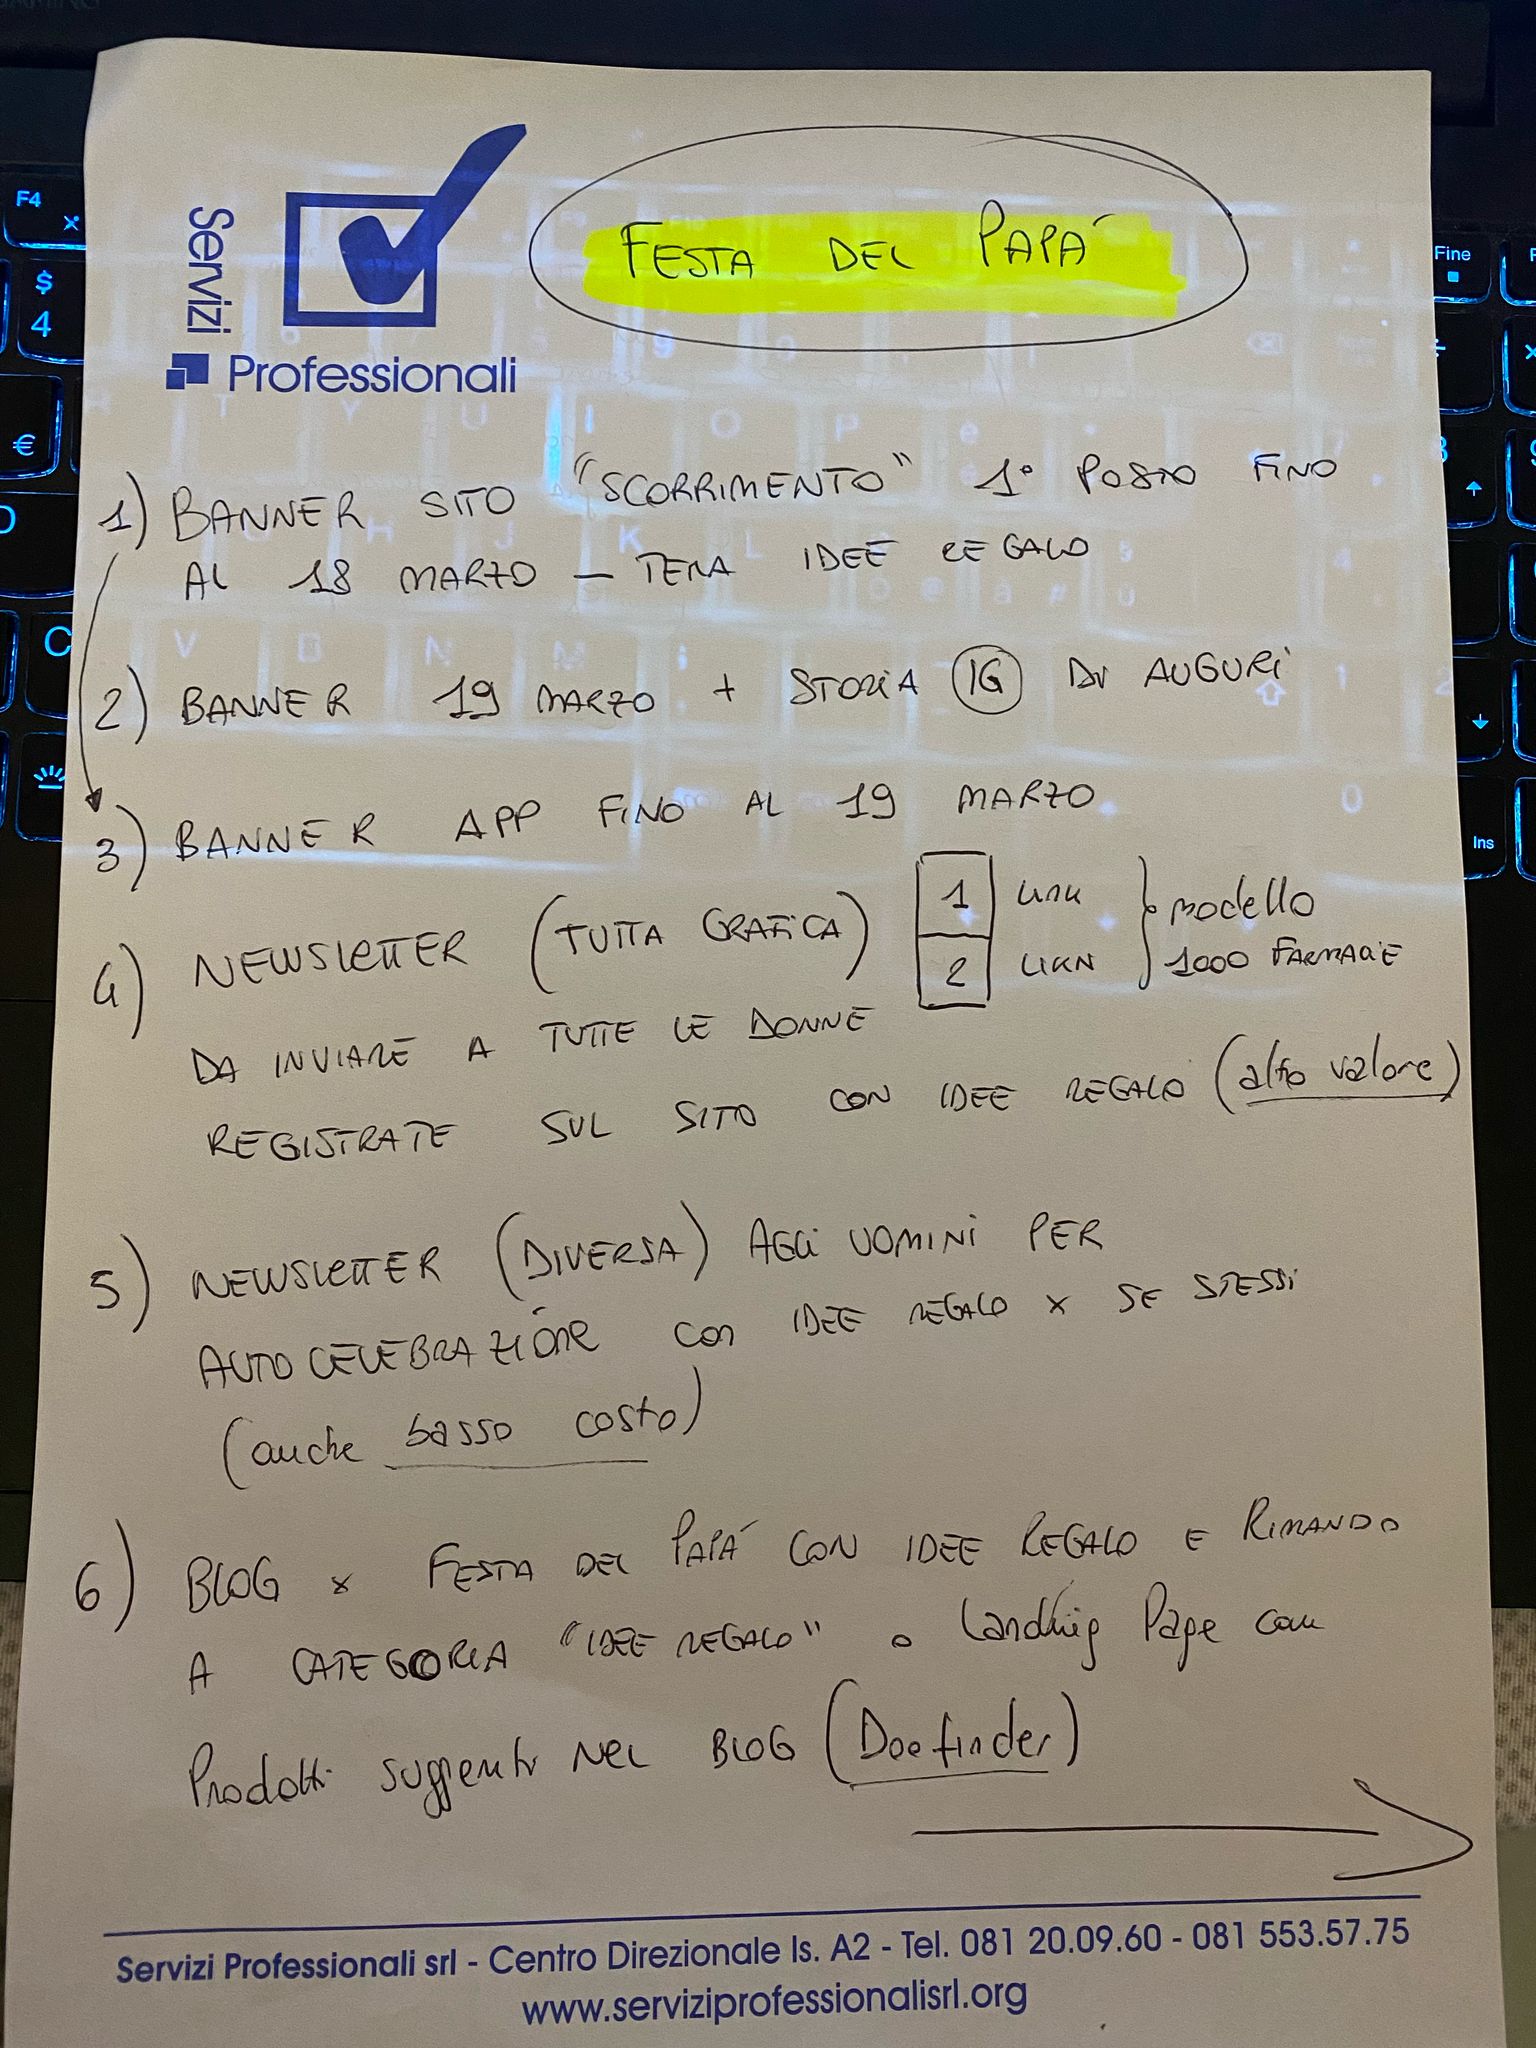 Servizi
Professionali
FESTA DEL PAPÁ
1) BANNER SITO "SCORRIMENTO" 1° POSTO FINO
AL 18 MARZO – TEMA IDEE REGALO
2) BANNER 19 MARZO + STORIA IG DI AUGURI
3) BANNER APP FINO AL 19 MARZO
4) NEWSLETTER (TUTTA GRAFICA) 1 LINK } modello
2 LIKN 1000 FARMACIE
DA INVIARE A TUTTE LE DONNE
REGISTRATE SUL SITO CON IDEE REGALO (alto valore)
5) NEWSLETTER (DIVERSA) AGLI UOMINI PER
AUTOCELEBRAZIONE con IDEE REGALO x SE STESSI
(anche basso costo)
6) BLOG x FESTA DEL PAPÁ CON IDEE REGALO E RIMANDO
A CATEGORIA "IDEE REGALO" o Landing Page con
Prodotti suggeriti NEL BLOG (Doofinder)
Servizi Professionali srl - Centro Direzionale Is. A2 - Tel. 081 20.09.60 - 081 553.57.75
www.serviziprofessionalisrl.org
F4
$
4
€
C
Fine
Ins